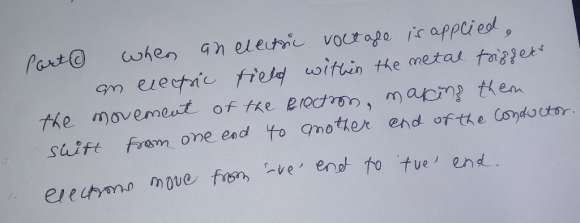 Part ⓒ when an electric voltage is applied,
an electric field within the metal triggers
the movement of the electron, making them
shift from one end to another end of the conductor.
electrons move from '-ve' end to '+ve' end.